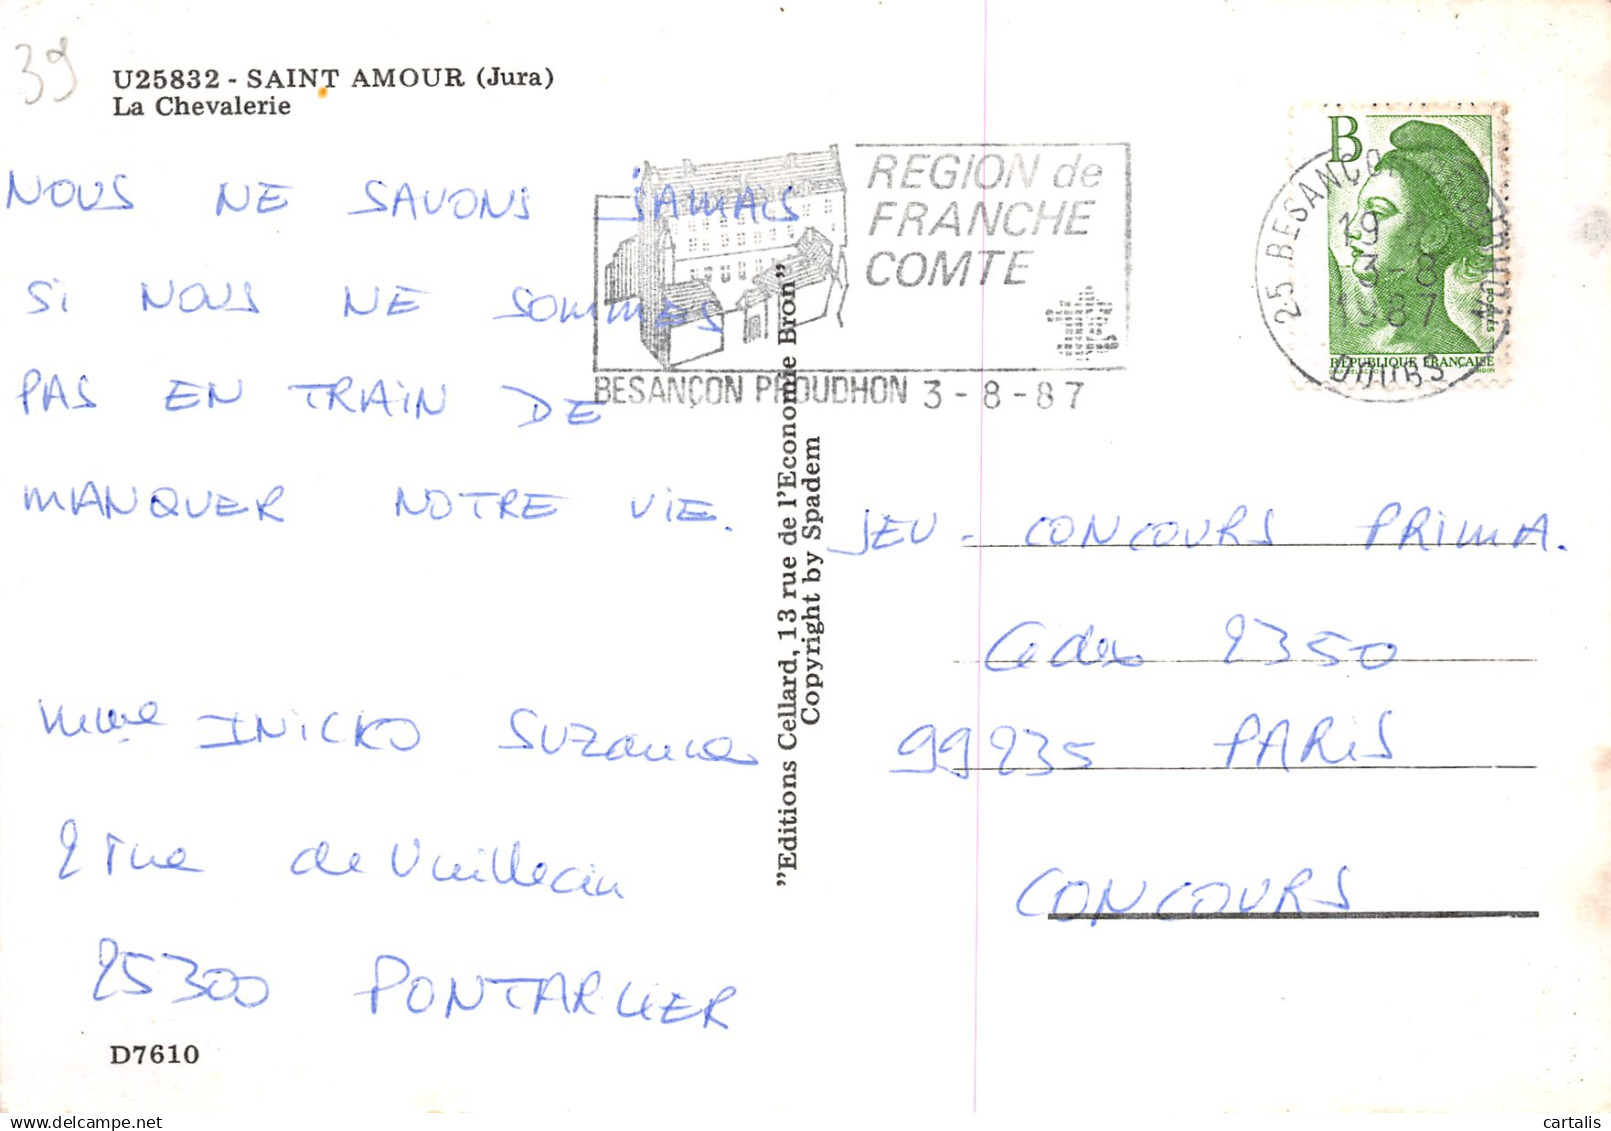 39
U25832 - SAINT AMOUR (Jura)
La Chevalerie
NOUS NE SAVONS JAMAIS
SI NOUS NE SOMMES
PAS EN TRAIN DE
MANQUER NOTRE VIE.
Mme INICKO Suzanne
2 rue de Vuillecin
25300 PONTARLIER
D7610
REGION de
FRANCHE
COMTE
BESANÇON PROUDHON 3-8-87
"Editions Cellard, 13 rue de l'Economie Bron"
Copyright by Spadem
B
POSTES
RÉPUBLIQUE FRANÇAISE
25 BESANÇON PROUDHON
19 H
3-8
1987
DOUBS
JEU - CONCOURS PRIMA.
Cedex 2350
99235 PARIS
CONCOURS
delcampe.net
cartalis